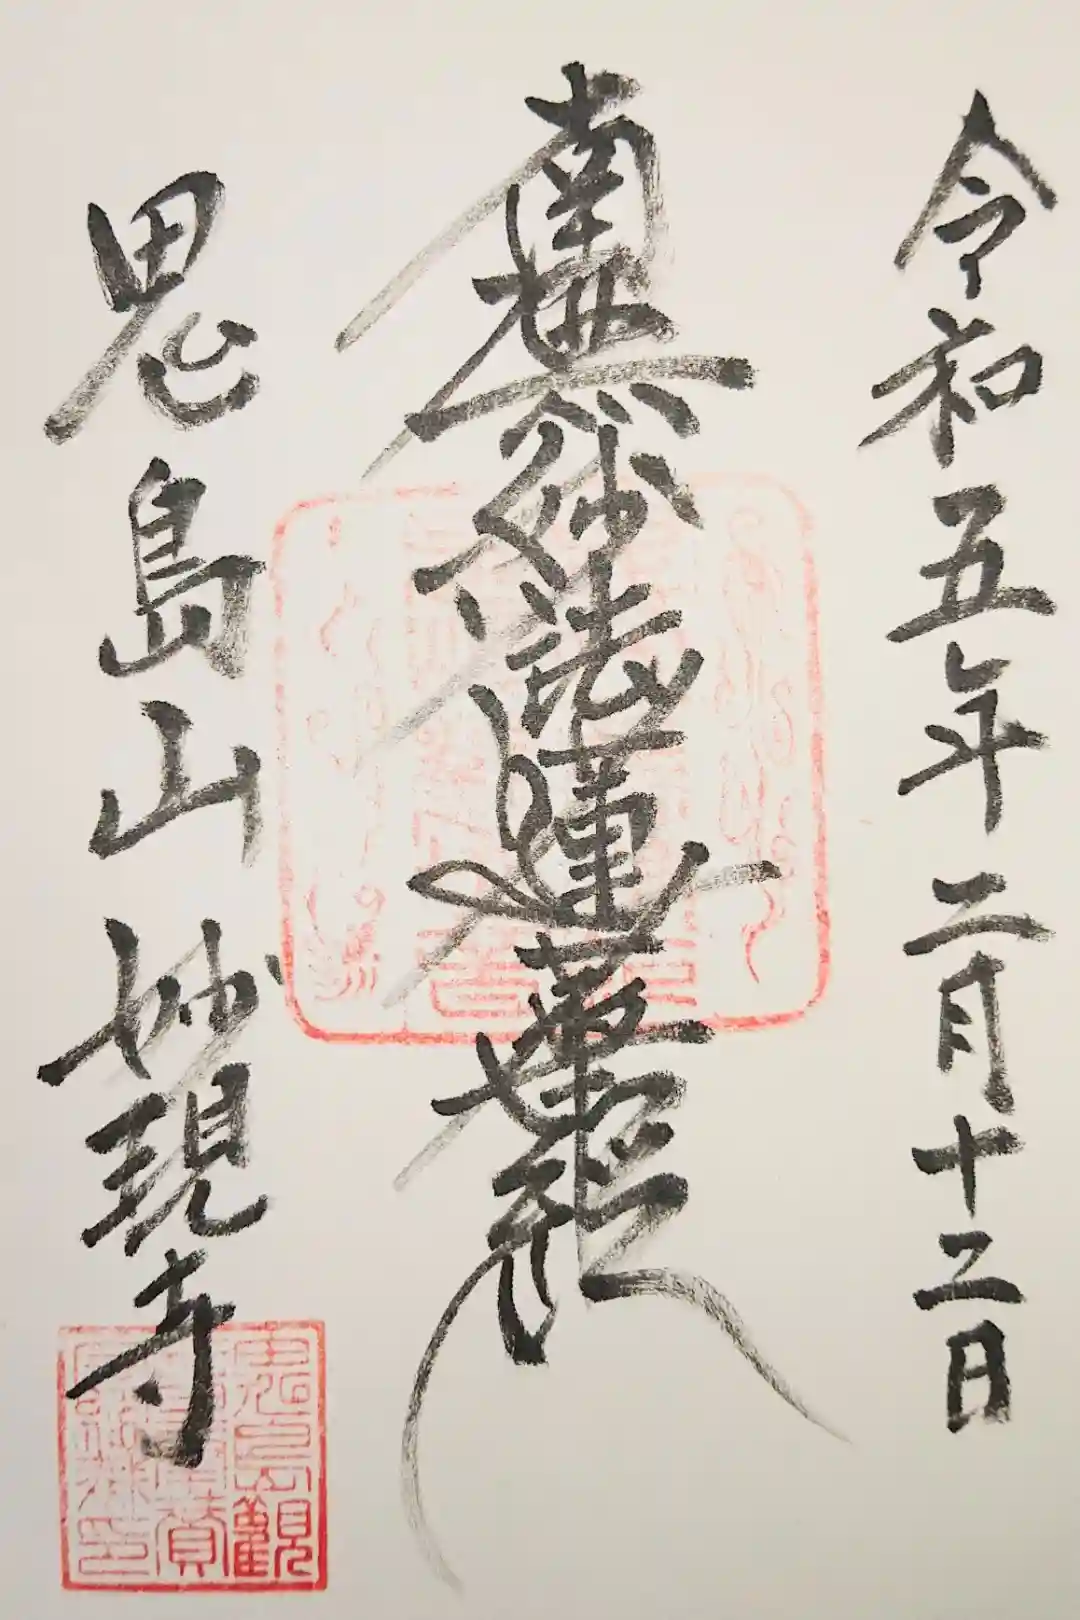 令和五年二月十二日
南無妙法蓮華経
鬼島山 妙現寺